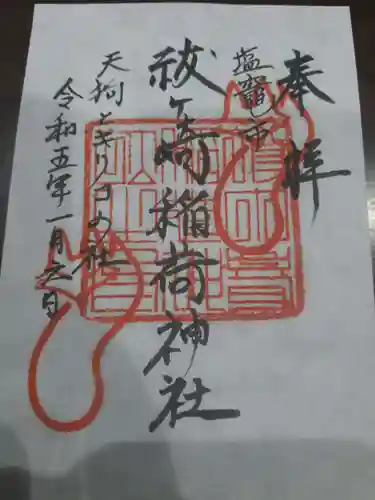 奉拝
塩竈市
祓ヶ崎稲荷神社
天狗とキリコの社
令和五年一月六日